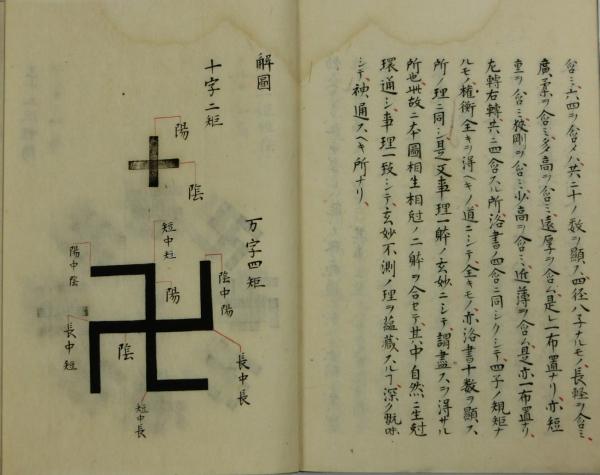 含ミ、六四ヲ含メハ共二十ノ数ヲ顕ス、四径八子ナルモノ、長軽ヲ含ミ、
廣、柔ヲ含ミ、多高ヲ含ミ、遠厚ヲ含ム、是レ一布置ナリ、亦短
重ヲ含ミ、狭剛ヲ含ミ、少高ヲ含ミ、近薄ヲ含ム、是亦一布置ナリ、
左轉右轉、共ニ四含スル所、洛書ノ四含ニ同シクシテ、四子ノ規矩ナ
ルモノ、權衡全キヲ得ヘキノ道ニシテ、全キモノ、亦洛書十数ヲ顕ス
所ノ理ニ同シ、是又事理一躰ノ玄妙ニシテ、謂盡スヿヲ得サル
所也、此故ニ本圖相生相尅ノ二躰ヲ合セテ、其中自然ニ生尅
環通シ、事理一致シテ、玄妙不測ノ理ヲ蘊蔵スルヿ深ク翫味
シテ、神通スヘキ所ナリ、
解圖
十字二矩
陽
陰
万字四矩
短中短
陽
陰中陽
陽中陰
長中短
陰
長中長
短中長